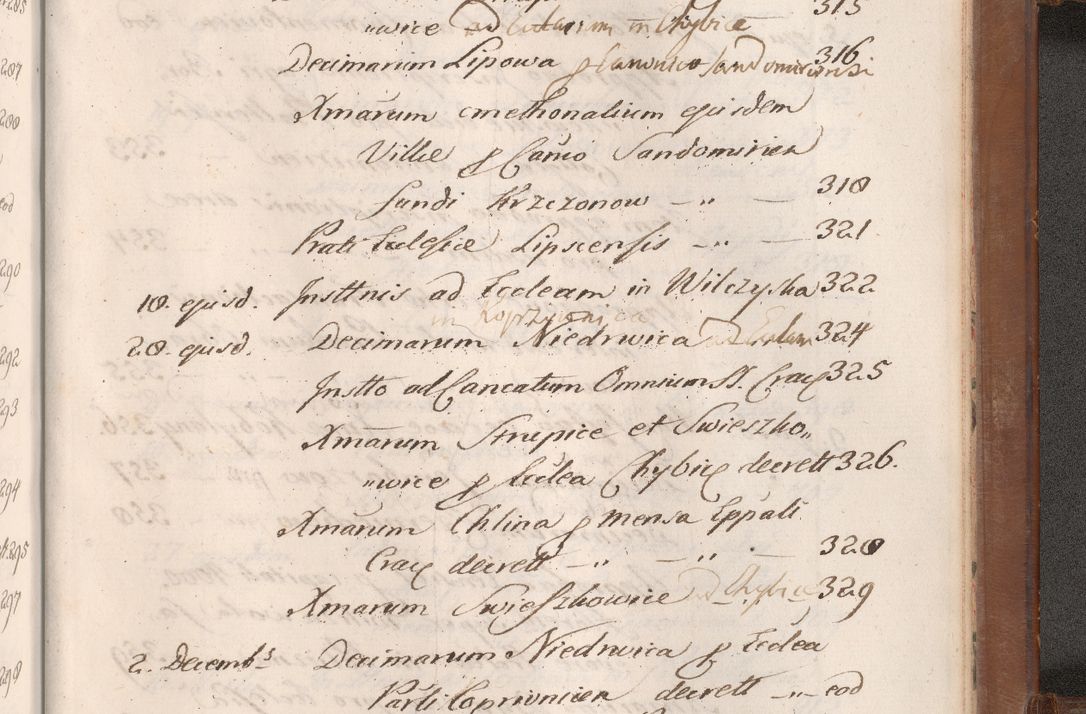 „wice ad Eccla̅m in Chybice 315
Decimarum Lipowa p Canonico Sandomiriensi 316
Xmarum cmethonalium ejusdem
Villæ p Ca̅nco Sandomirien
Fundi Krzczonow — „ — 318
Prati Ecclesiæ Lipscensis — „ — 321
18. ejusd. Insttnis ad Eccleam in Wilczyska 322
in Koprzywnica
28. ejusd. Decimarum Niedrwica ad Eccla̅m 324
Instto ad Cancatum Omnium SS. Crac 325
Xmarum Strupice et Swieszko„
„wice p Ecclea Chybic decrett 326.
Xmarum Chlina p mensa Eppali
Crac decrett — „ — „ — 328
Xmarum Swieszkowice ad Chybice 329
2. Decembs Decimarum Niedrwica p Ecclea
Parli Coprivnicen decrett — „ — eod
285
287
288
eod
290
292
293
294
295
297
298